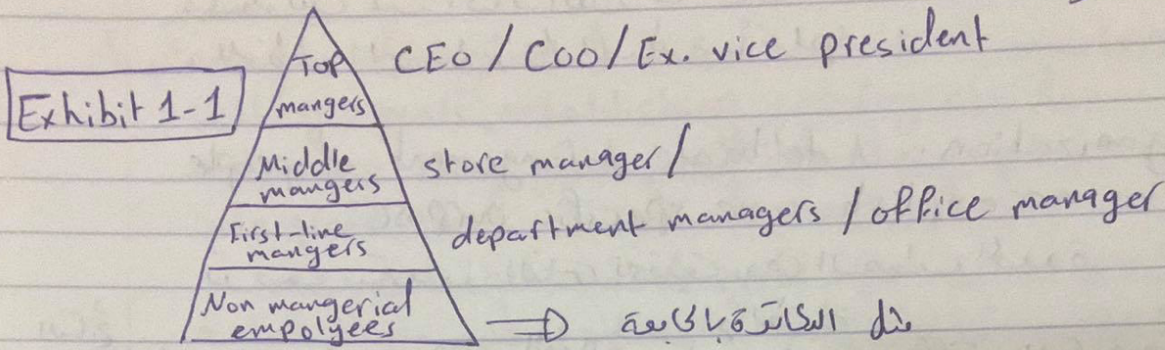 Exhibit 1-1
Top
mangers
CEO / COO / Ex. vice president
Middle
mangers
store manager /
First-line
mangers
department managers / office manager
Non mangerial
empolyees
مثل الدكاترة بالجامعة